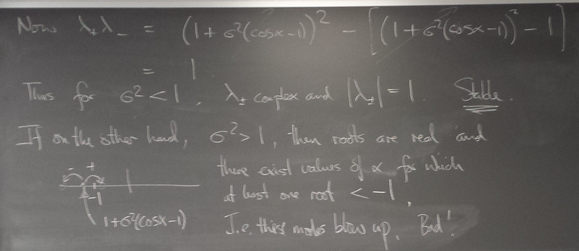 Now λ₊λ₋ = (1+σ²(cosα-1))² - [(1+σ²(cosα-1))² - 1]
= 1
Thus for σ² < 1, λ± complex and |λ±| = 1. Stable.
If on the other hand, σ² > 1, then roots are real and
there exist values of α for which
at least one root < -1,
I.e. these modes blow up. Bad!
- +
-1
1+σ²(cosα-1)